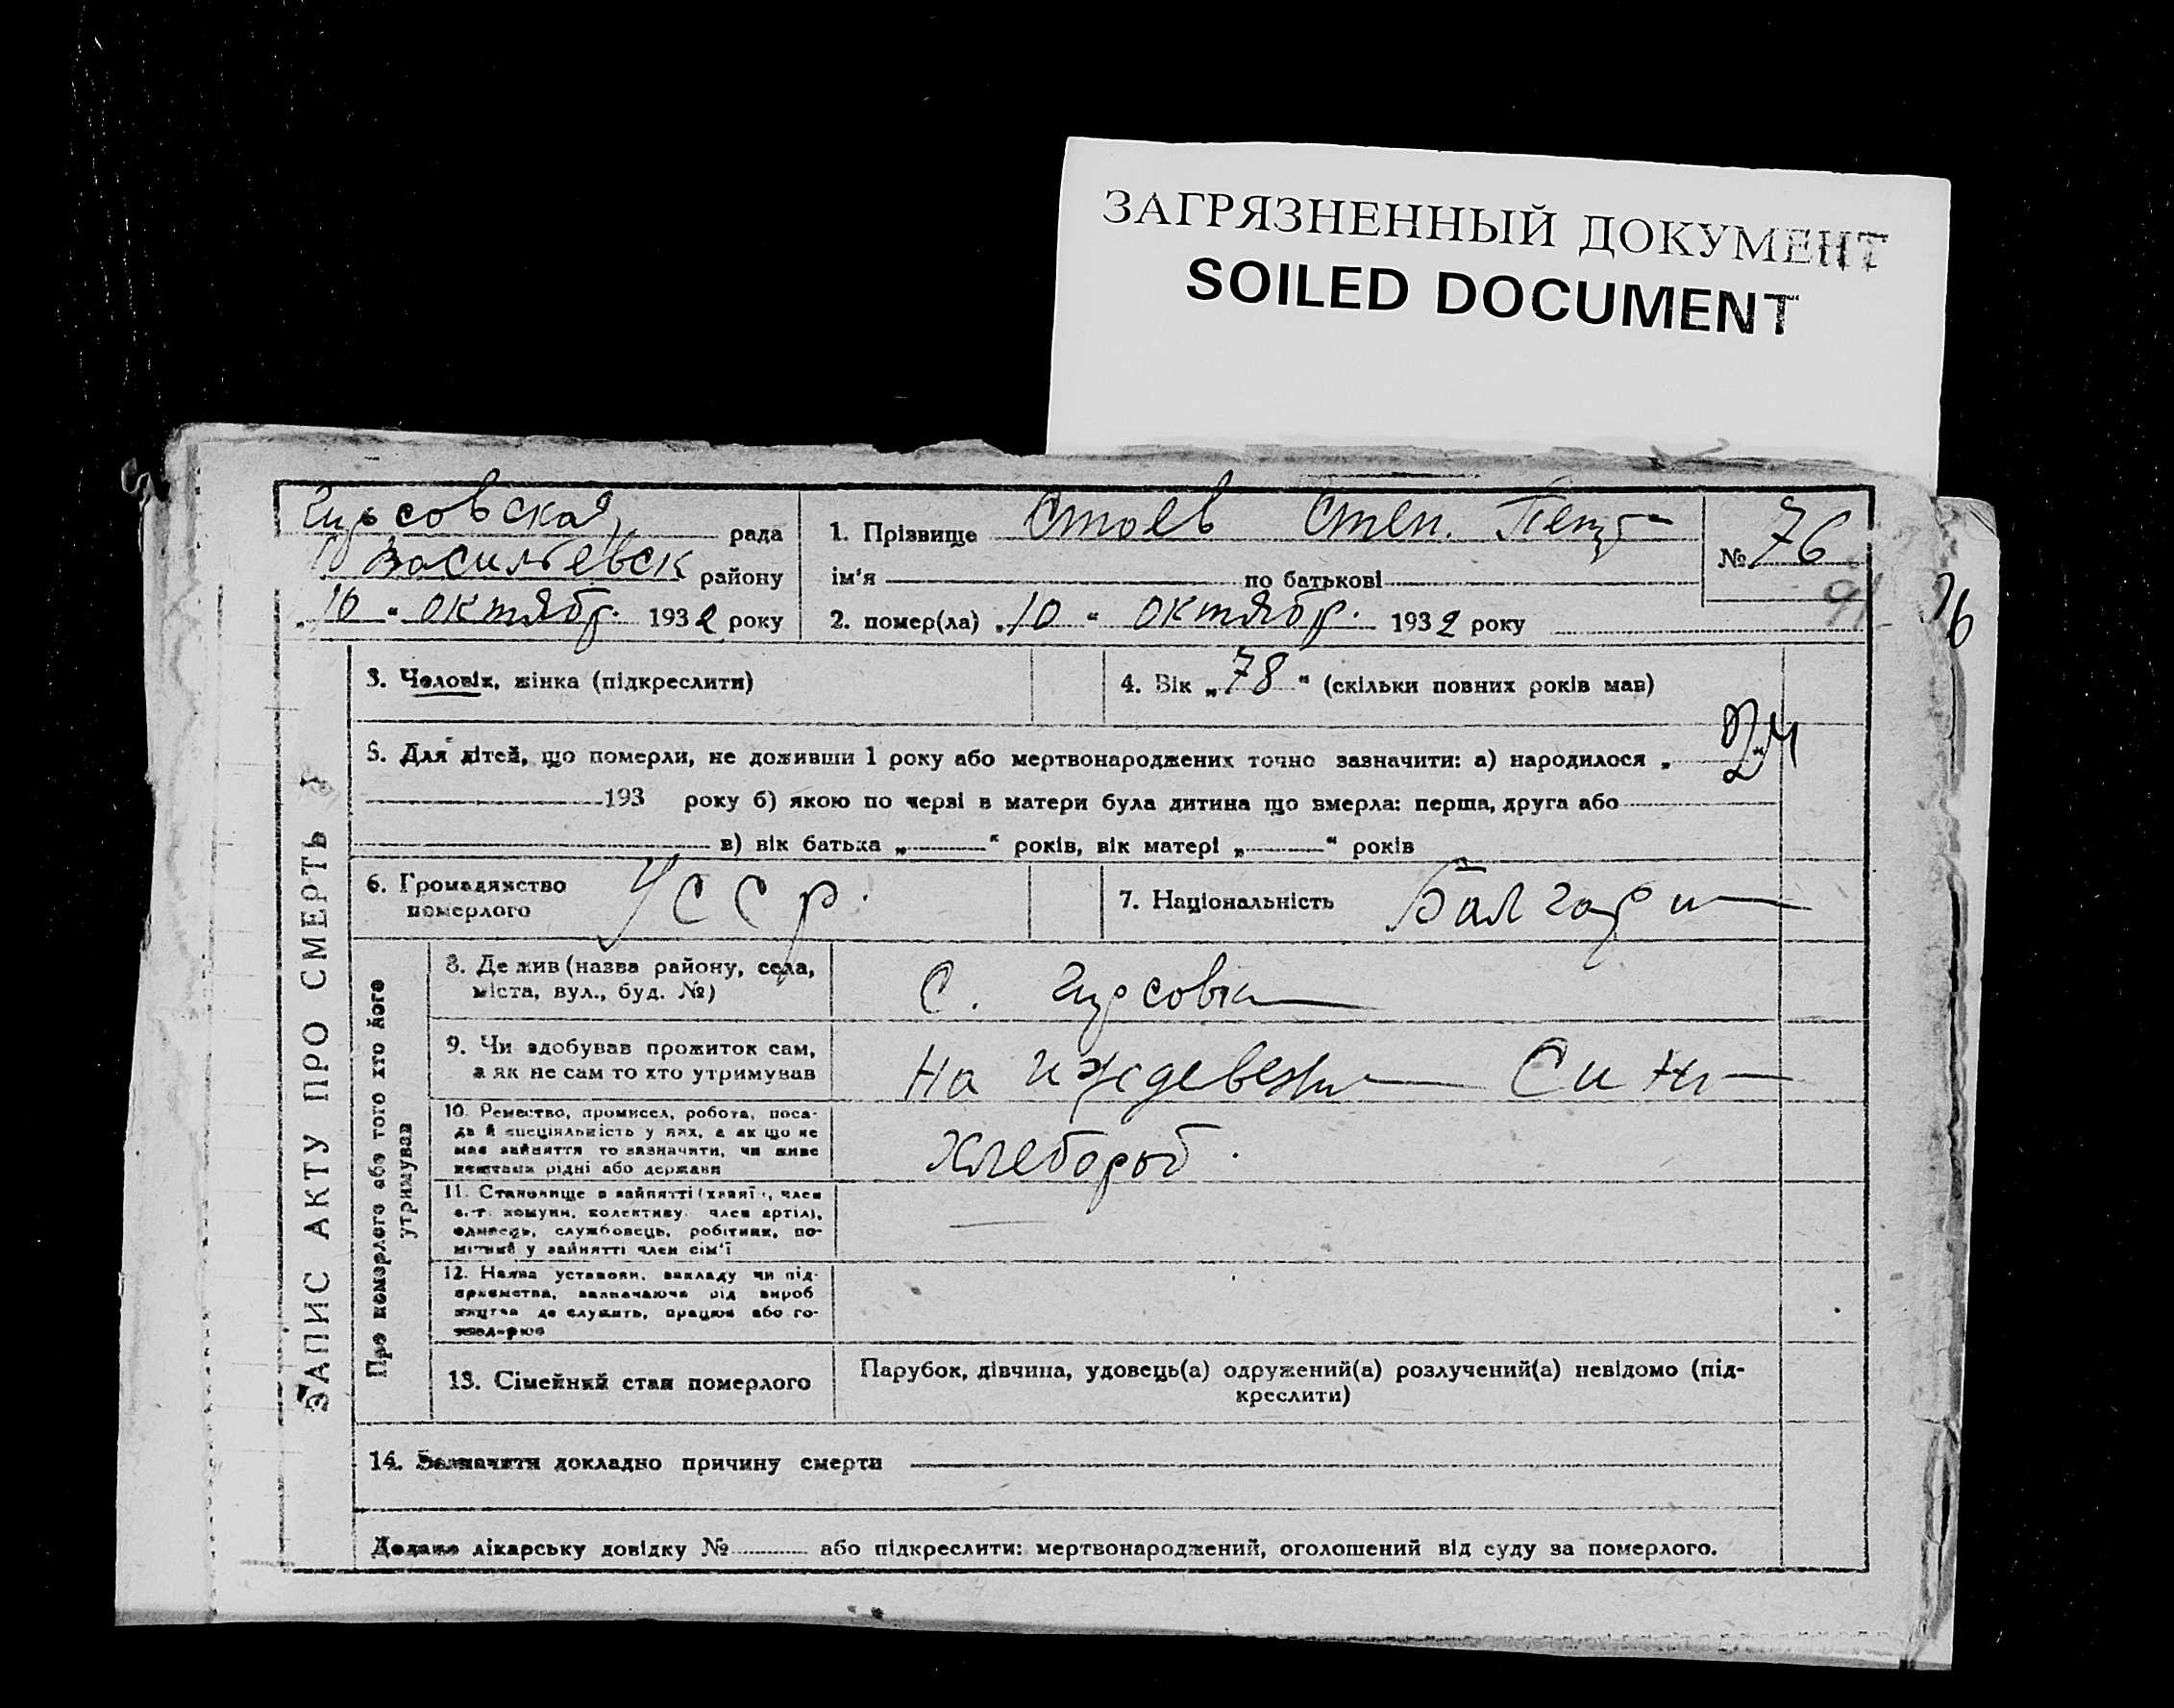 ЗАГРЯЗНЕННЫЙ ДОКУМЕНТ
SOILED DOCUMENT
Гирсовская рада
Васильевск району
"10" октябр. 1932 року
1. Прізвище Стоев Степ.
ім'я по батькові
№ 76
91
76
2. помер(ла) "10" октябр. 1932 року
3. Чоловік, жінка (підкреслити)
4. Вік "78" (скільки повних років мав)
5. Для дітей, що померли, не доживши 1 року або мертвонароджених точно зазначити: а) народилося "
193 року б) якою по черві в матери була дитина що вмерла: перша, друга або
в) вік батька " " років, вік матері " " років
6. Громадянство
померлого
УССР.
7. Національність Балгарин
ЗАПИС АКТУ ПРО СМЕРТЬ
Про померлого або того хто його
утримував
8. Де жив (назва району, села,
міста, вул., буд. №)
С. Гирсовка
9. Чи здобував прожиток сам,
а як не сам то хто утримував
На иждевении Сина
10. Ремество, промисел, робота, поса-
да й спеціяльність у них, а як що не
має зайняття то зазначити, чи живе
коштами рідні або держави
Хлебороб.
11. Становище в зайнятті (хазяї, член
с.-г. комуни, колективу, член артілі,
одинець, службовець, робітник, по-
мічний у зайнятті член сім'ї
12. Назва установи, закладу чи під-
приємства, зазначаючи рід вироб
ництва де служить, працює або го-
13. Сімейний стан померлого
Парубок, дівчина, удовець(а) одружений(а) розлучений(а) невідомо (під-
креслити)
14. Зазначити докладно причину смерти
Додано лікарську довідку № або підкреслити: мертвонароджений, оголошений від суду за померлого.